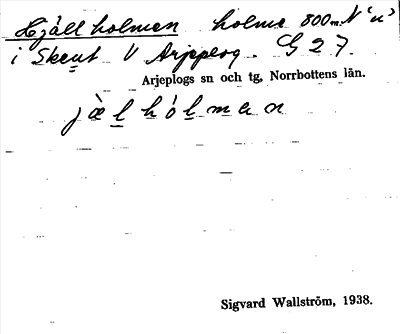 Hjällholmen holme 800m N'n'
i Skeut V Arjeplog. G 27.
Arjeplogs sn och tg, Norrbottens län.
jæ̀l hól man
Sigvard Wallström, 1938.